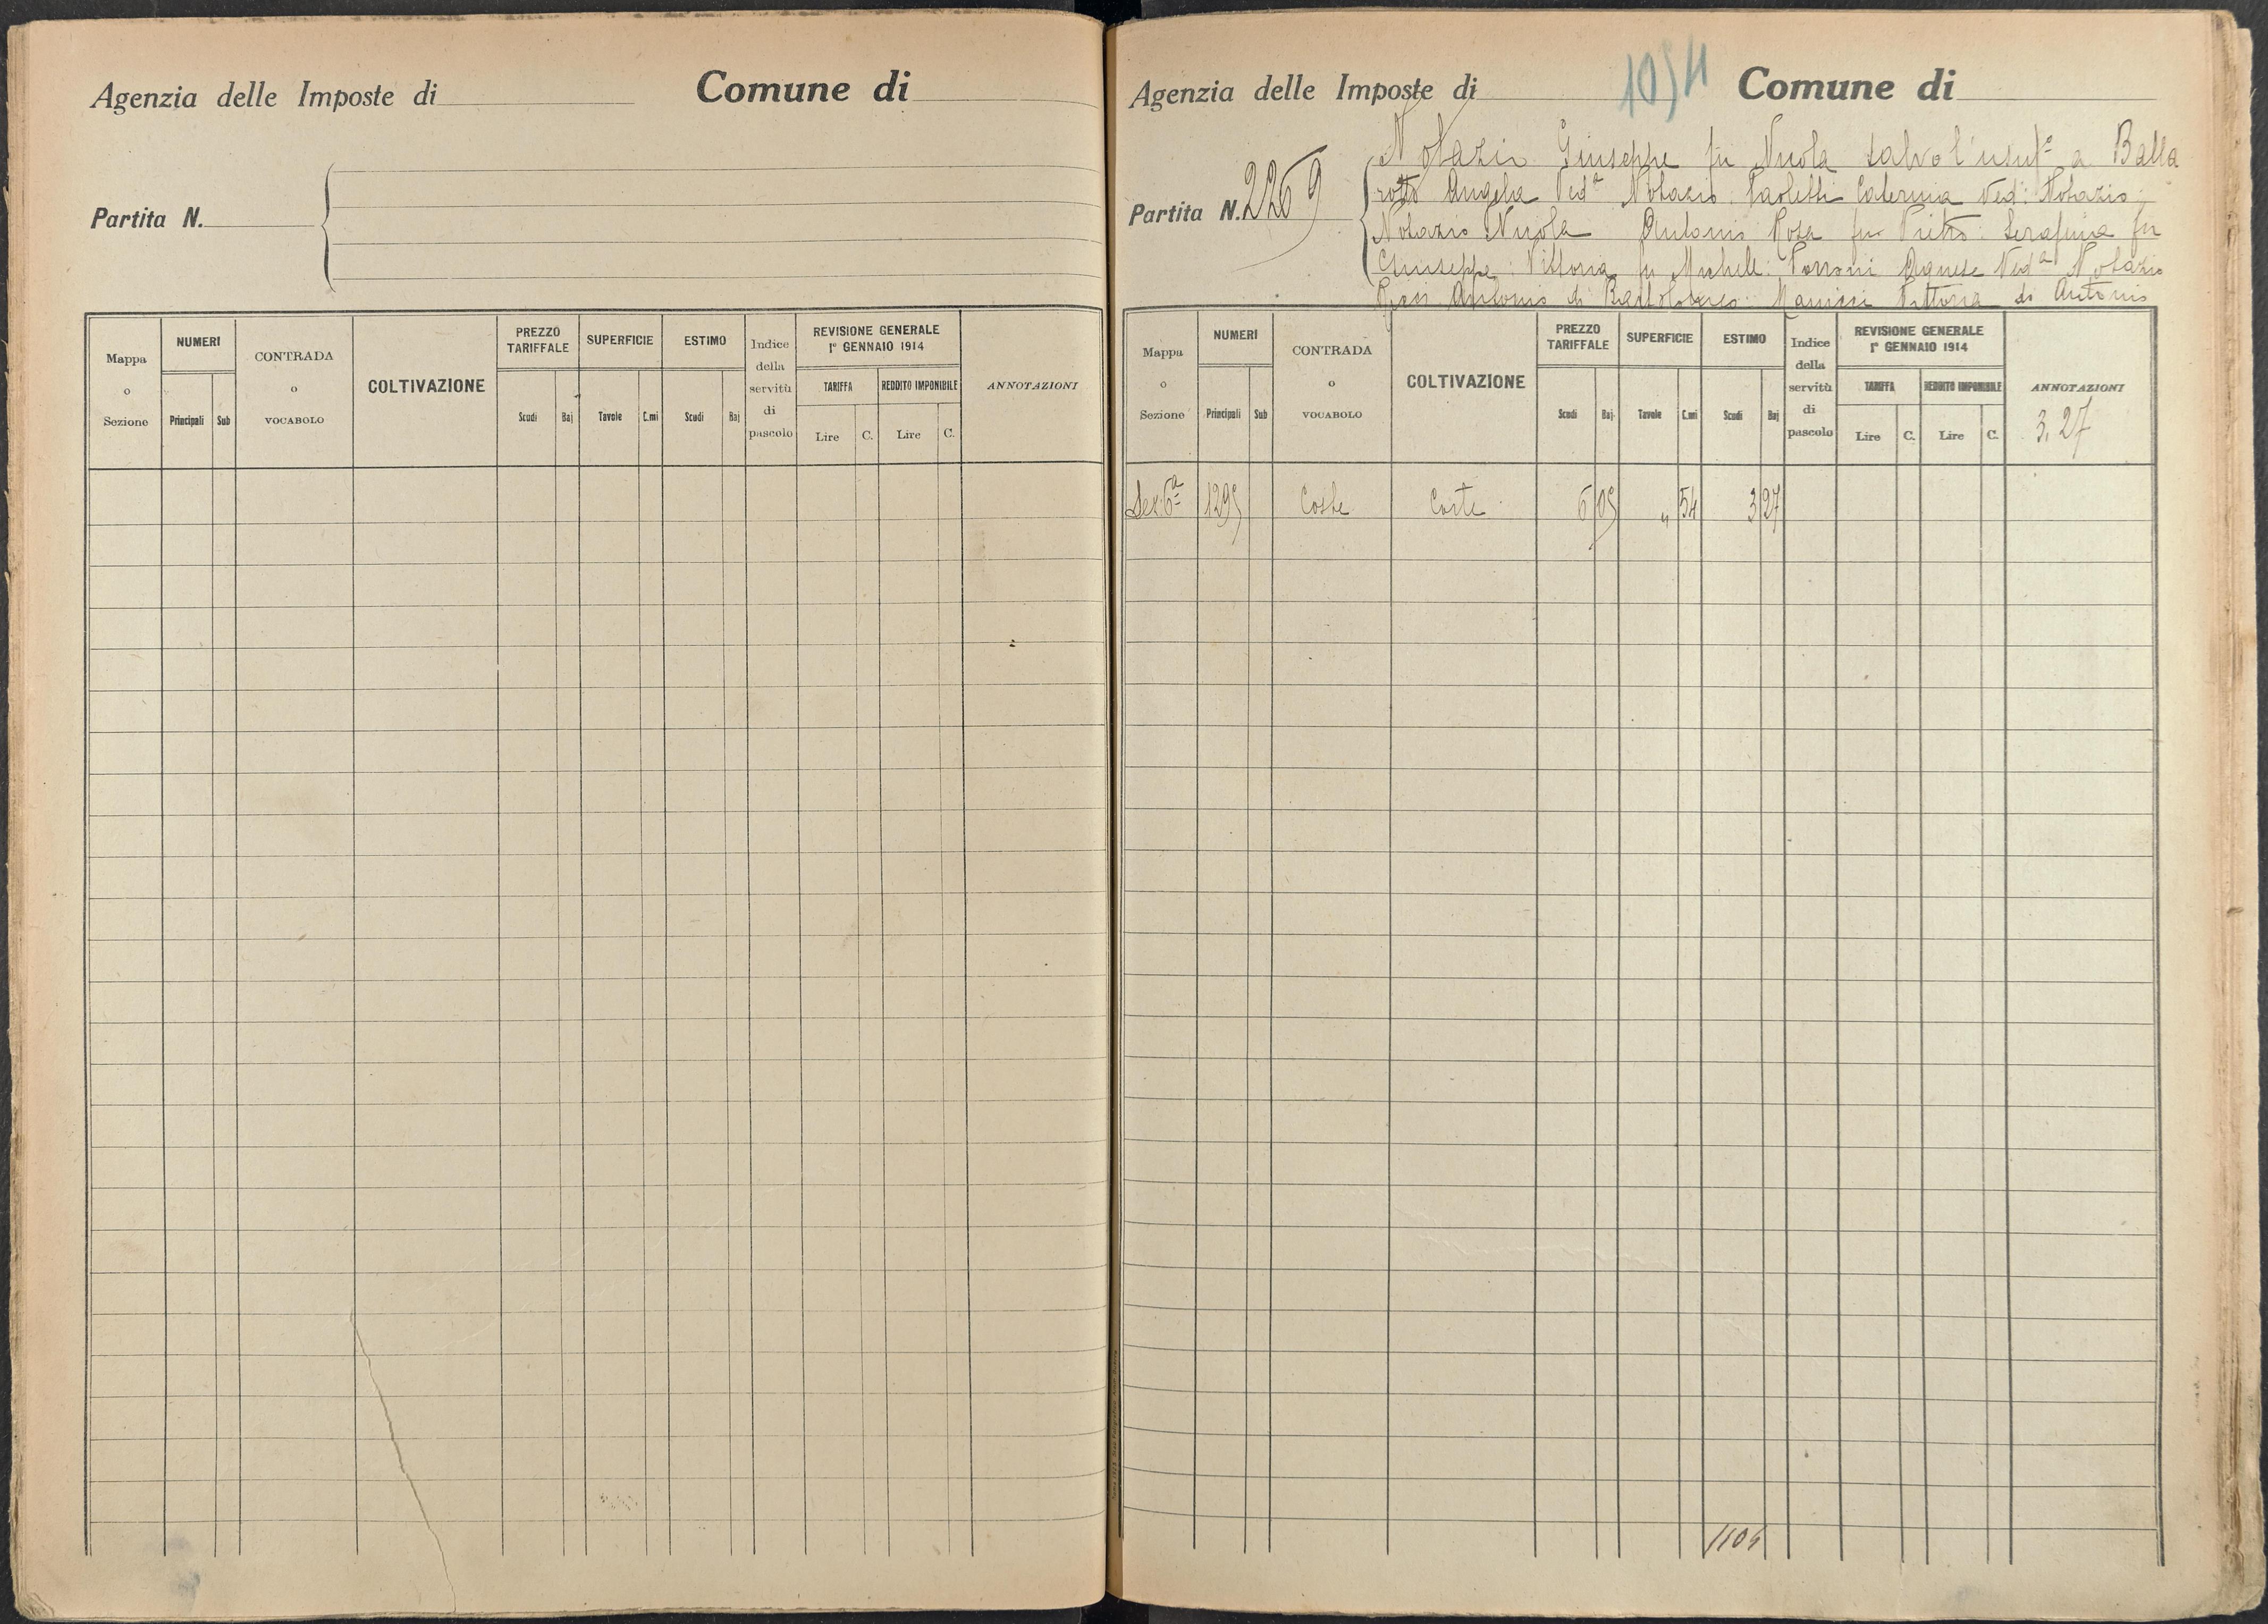 Agenzia delle Imposte di Comune di
Partita N.
Mappa o Sezione NUMERI Principali Sub CONTRADA o VOCABOLO COLTIVAZIONE PREZZO TARIFFALE Scudi Baj SUPERFICIE Tavole C.mi ESTIMO Scudi Baj Indice della servitù di pascolo REVISIONE GENERALE 1° GENNAIO 1914 TARIFFA Lire C. REDDITO IMPONIBILE Lire C. ANNOTAZIONI
Agenzia delle Imposte di Comune di
Partita N. 2269
Giuseppe fu Nicola salvo l'usuf° a Balla
Angela Ved.a Notazio Paoletti Caterina Ved: Notazio
Notazio Nicola Antonio Rosa fu Pietro Serafina fu
Giuseppe Vittoria fu Michele Agnese Ved.a Notazio
Antonio di Bartolomeo Vittoria di Antonio
Mappa o Sezione NUMERI Principali Sub CONTRADA o VOCABOLO COLTIVAZIONE PREZZO TARIFFALE Scudi Baj. SUPERFICIE Tavole C.mi ESTIMO Scudi Baj Indice della servitù di pascolo REVISIONE GENERALE 1° GENNAIO 1914 TARIFFA Lire C. REDDITO IMPONIBILE Lire C. ANNOTAZIONI
3,27
Sez: 6ª 1295 Coste Corte 6 05 " 54 3 27